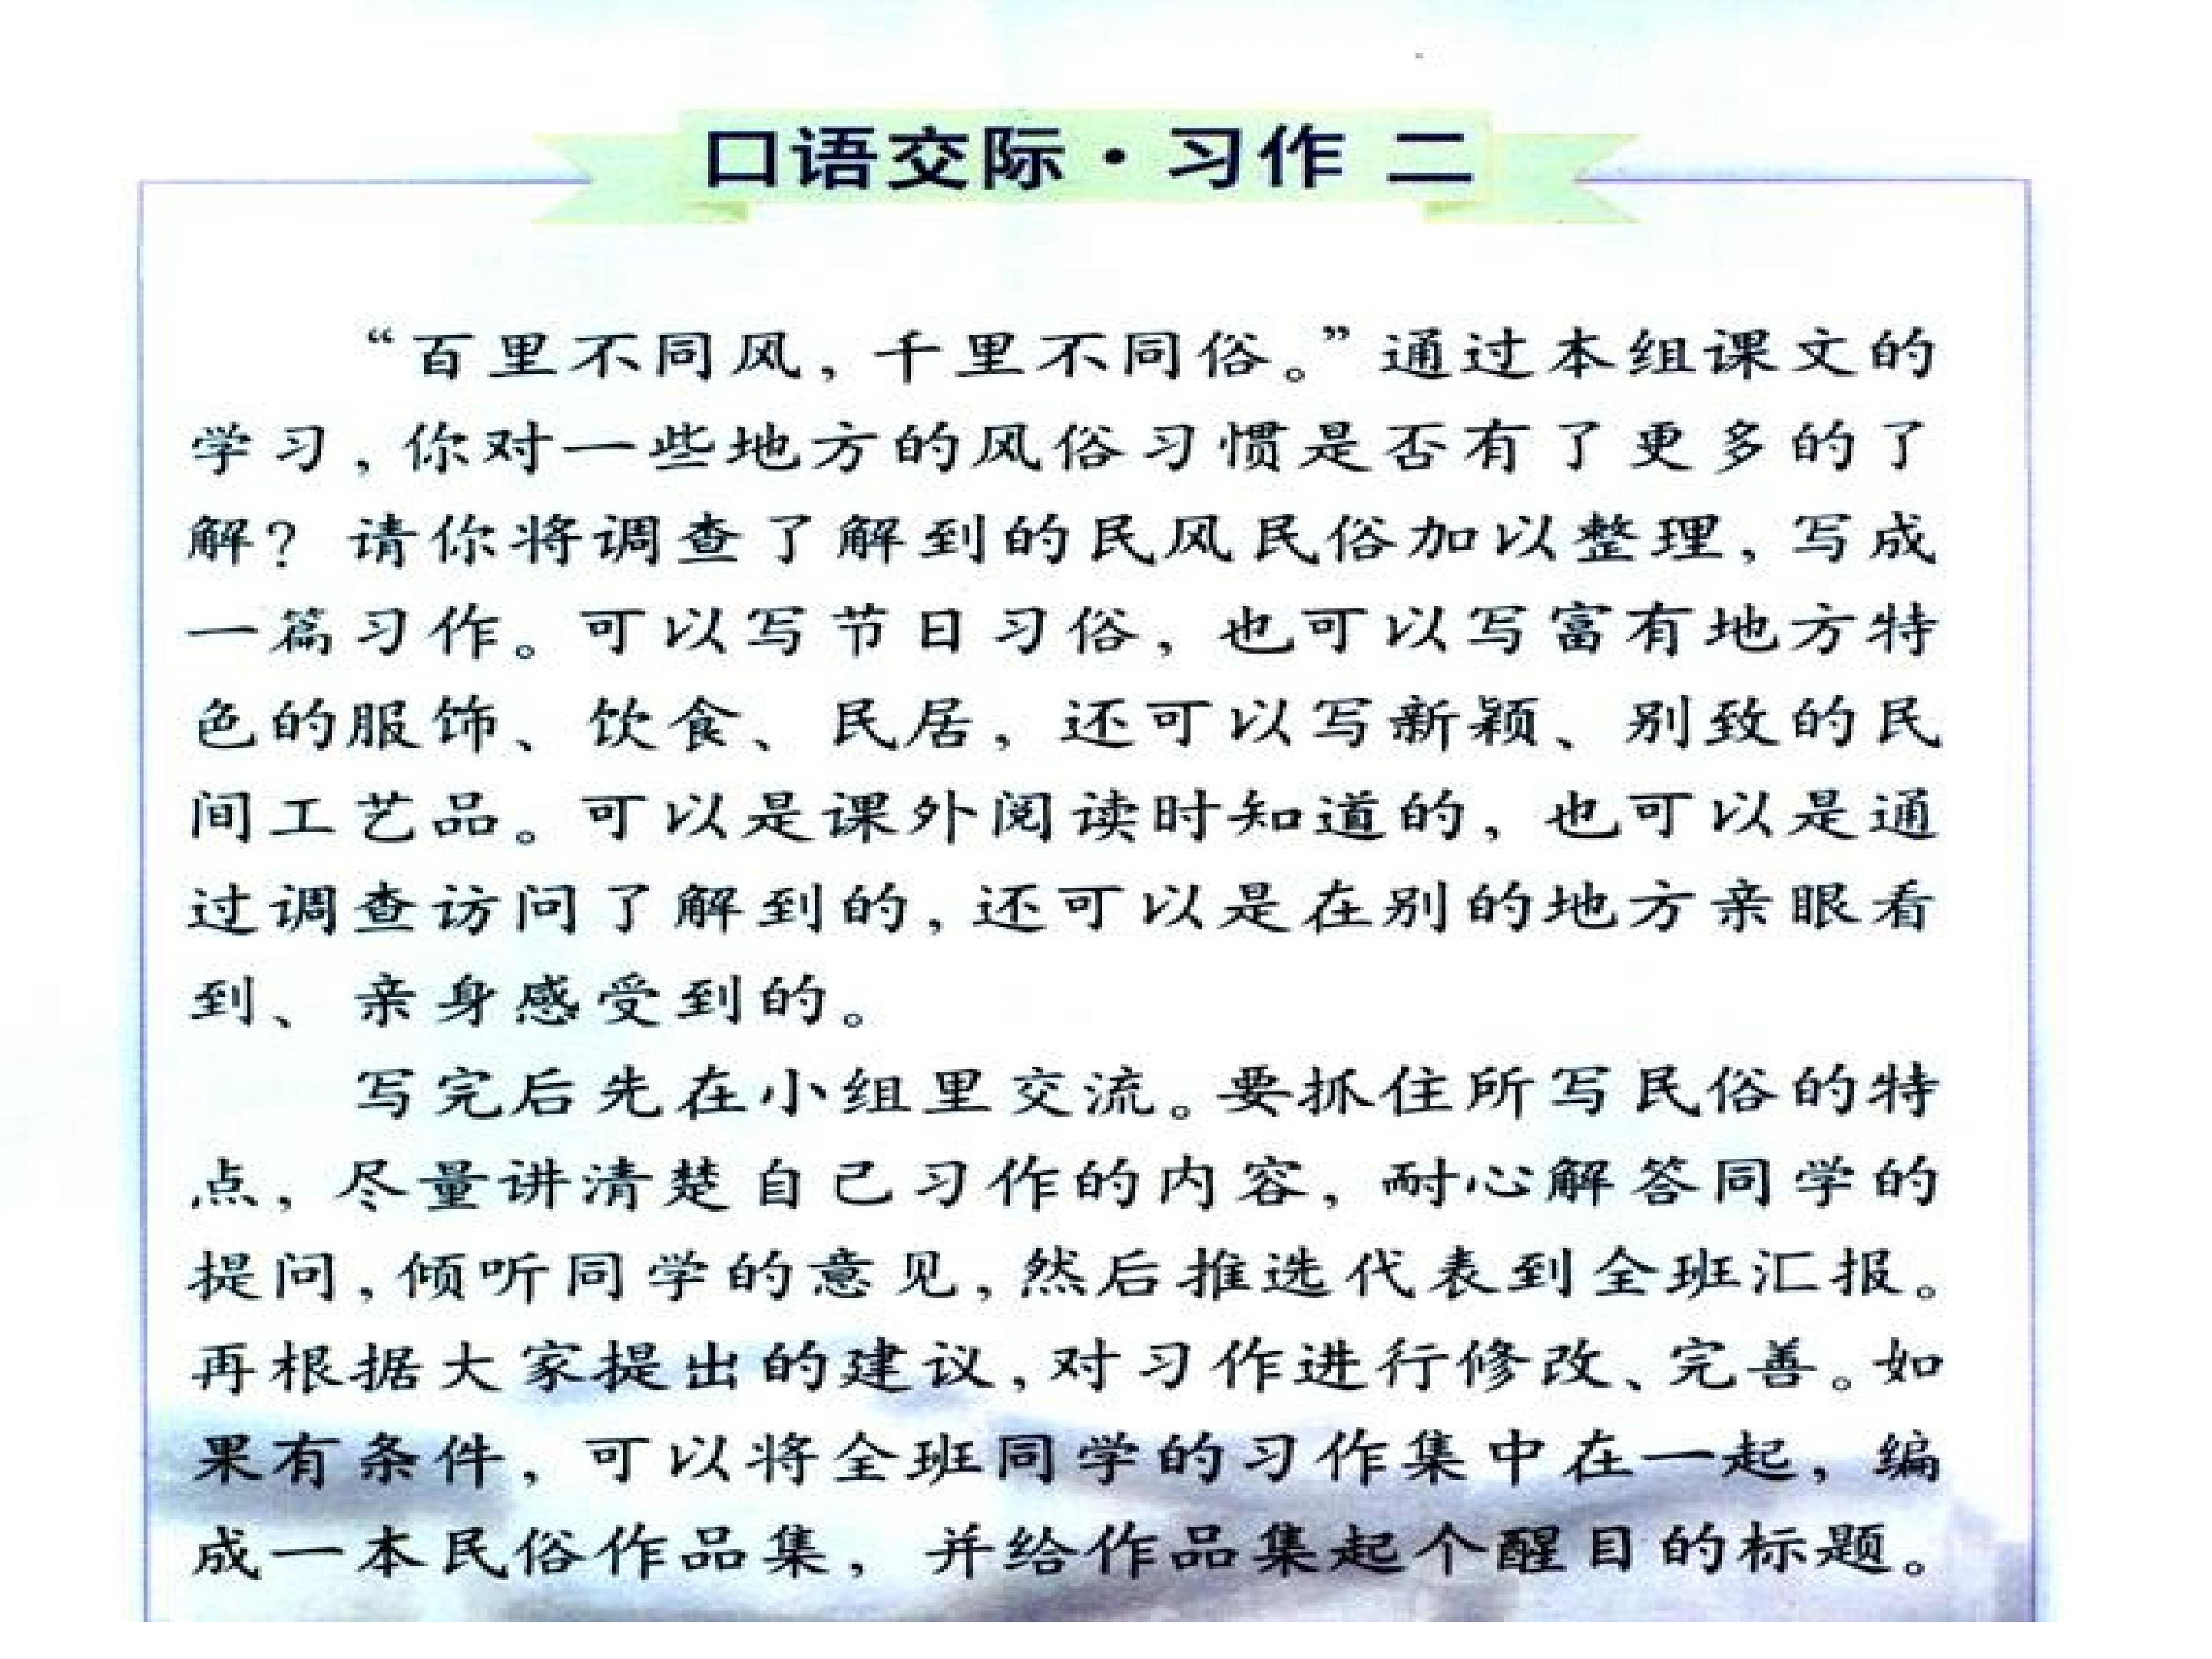 口语交际·习作 二
“百里不同风，千里不同俗。”通过本组课文的
学习，你对一些地方的风俗习惯是否有了更多的了
解？请你将调查了解到的民风民俗加以整理，写成
一篇习作。可以写节日习俗，也可以写富有地方特
色的服饰、饮食、民居，还可以写新颖、别致的民
间工艺品。可以是课外阅读时知道的，也可以是通
过调查访问了解到的，还可以是在别的地方亲眼看
到、亲身感受到的。
写完后先在小组里交流。要抓住所写民俗的特
点，尽量讲清楚自己习作的内容，耐心解答同学的
提问，倾听同学的意见，然后推选代表到全班汇报。
再根据大家提出的建议，对习作进行修改、完善。如
果有条件，可以将全班同学的习作集中在一起，编
成一本民俗作品集，并给作品集起个醒目的标题。